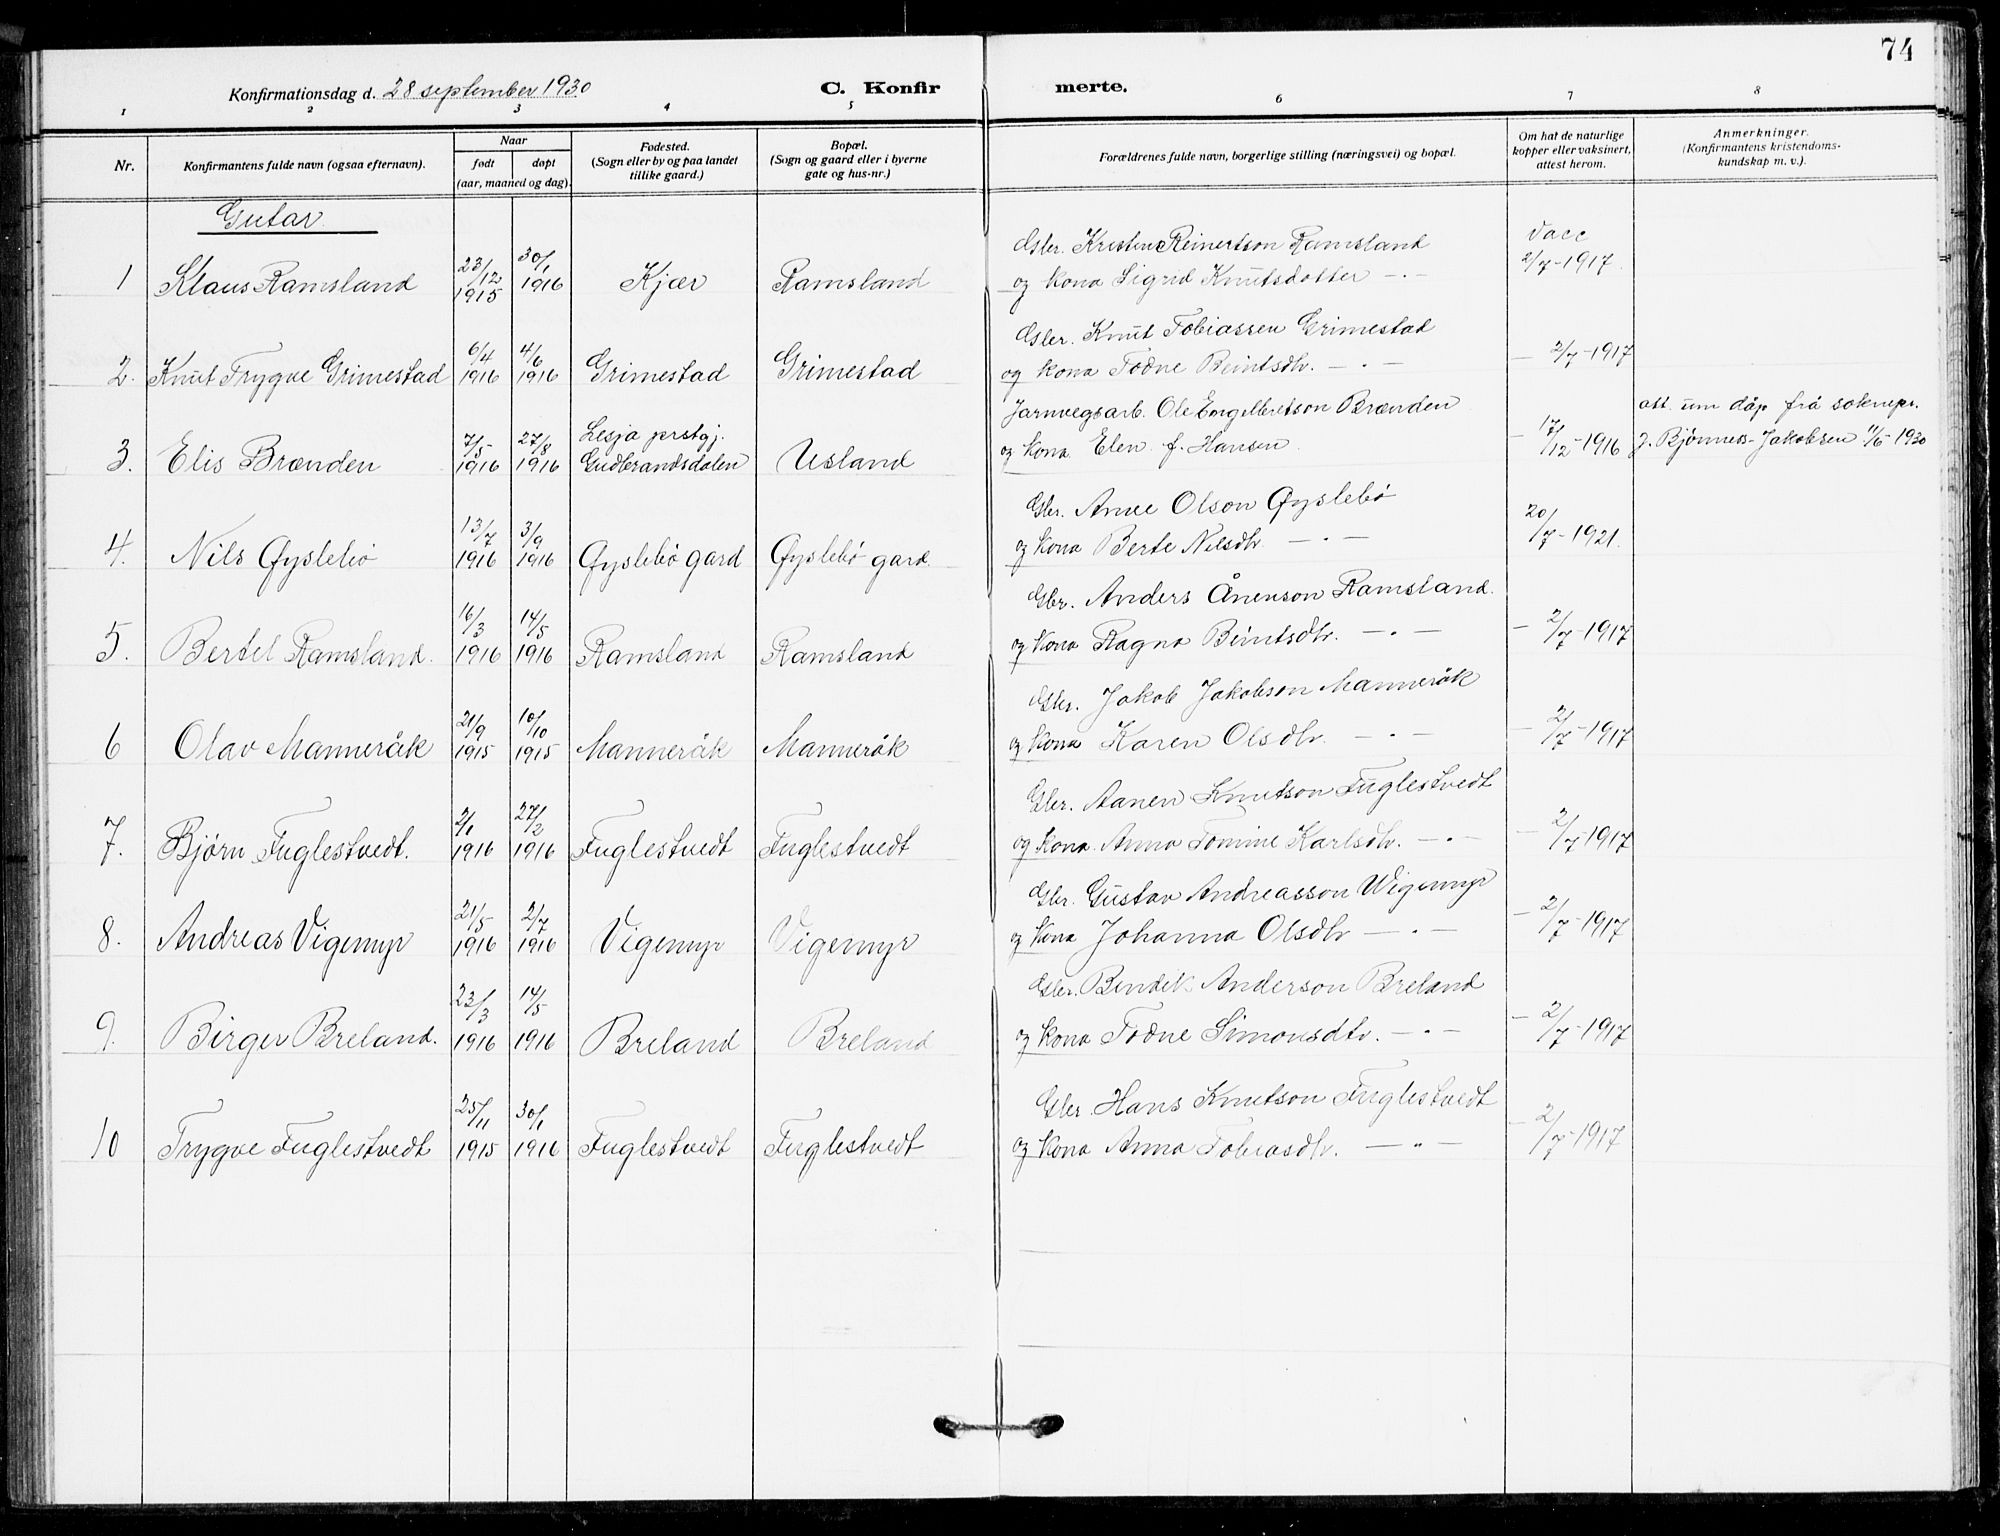 74
Konfirmationsdag d. 28 september 1930
C. Konfirmerte.
1 2 3 4 5 6 7 8
Nr.
Konfirmantens fulde navn (ogsaa efternavn).
Naar
født
døpt
(aar, maaned og dag).
Fødested.
(Sogn eller by og paa landet
tillike gaard.)
Bopæl.
(Sogn og gaard eller i byerne
gate og hus-nr.)
Forældrenes fulde navn, borgerlige stilling (næringsvei) og bopæl.
Om hat de naturlige
kopper eller vaksinert,
attest herom.
Anmerkninger.
(Konfirmantens kristendoms-
kundskap m. v.).
Gutar
1 Klaus Ramsland 23/12 1915 30/1 1916 Kjær Ramsland
Gbr. Kristen Reinertson Ramsland
og kona Sigrid Knutsdotter —〃—
Vacc
2/7-1917.
2. Knut Trygve Grimestad 6/4 1916 4/6 1916 Grimestad Grimestad
Gbr. Knut Tobiassen Grimestad
og kona Todne Beintsdtr. —〃—
— 2/7-1917
3. Elis Brænden 7/5 1916 27/8 1916 Lesja prstgj. Gudbrandsdalen Usland
Jarnvegsarb. Ole Engelbretson Brænden
og kona Elen f. Hansen
— 17/12-1916
att. um dåp frå soknepr.
J. Bjønnes-Jakobsen 11/5-1930
4. Nils Øyslebø 13/7 1916 3/9 1916 Øyslebø gard Øyslebø gard.
Gbr. Anne Olson Øyslebø
og kona Berte Nilsdtr. —〃—
20/7-1921.
5. Bertel Ramsland. 16/3 1916 14/5 1916 Ramsland Ramsland
Gbr. Anders Ånenson Ramsland.
og kona Ragna Beintsdtr. —〃—
— 2/7-1917
6 Olav Manneråk 21/9 1915 10/10 1915 Manneråk Manneråk
Gbr. Jakob Jakobson Manneråk
og kona Karen Olsdtr. —〃—
— 2/7-1917
7. Bjørn Fuglestvedt. 2/1 1916 27/2 1916 Fuglestvedt Fuglestvedt
Gbr. Aanen Knutson Fuglestvedt
og kona Anna Tomine Karlsdtr. —〃—
— 2/7-1917
8. Andreas Vigemyr 21/5 1916 2/7 1916 Vigemyr Vigemyr
Gbr. Gustav Andreasson Wigemyr
og kona Johanna Olsdtr —〃—
— 2/7-1917
9. Birger Breland. 23/3 1916 14/5 1916 Breland Breland
Gbr. Bendik Anderson Breland
og kona Todne Simonsdtr. —〃—
— 2/7-1917
10 Trygve Fuglestvedt 25/11 1915 30/1 1916 Fuglestvedt Fuglestvedt
Gbr. Hans Knutson Fuglestvedt
og kona Anna Tobiasdtr. —〃—
— 2/7-1917